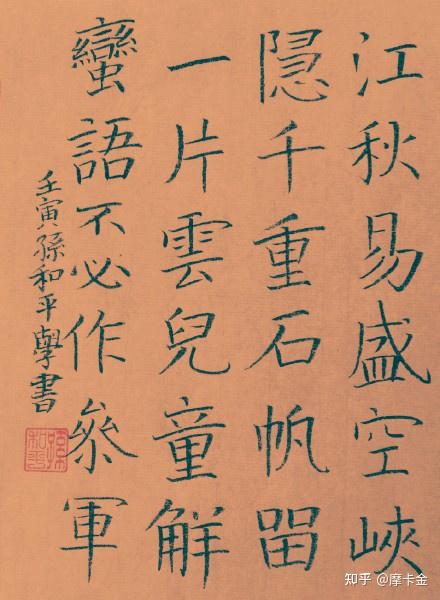 江秋易盛空峽
隱千重石帆留
一片雲兒童解
蠻語不必作參軍
壬寅孫和平學書
知乎 @摩卡金